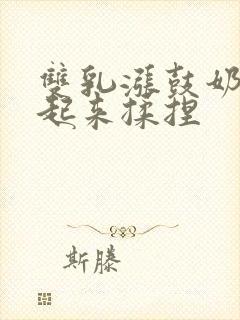 雙乳漲鼓奶
起来揉捏
斯滕